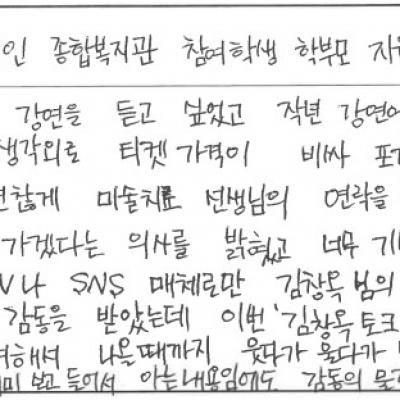 인 종합복지관 참여학생 학부모 지원
강연을 듣고 싶었고 작년 강연에
생각외로 티켓 가격이 비싸 포기
찮게 미술치료 선생님의 연락을
가겠다는 의사를 밝혔고 너무 기
V나 SNS 매체로만 김창옥 님의
감동을 받았는데 이번 '김창옥 토크
해서 나올때까지 웃다가 울다가
미 보고 들어서 아는내용임에도 감동의 물